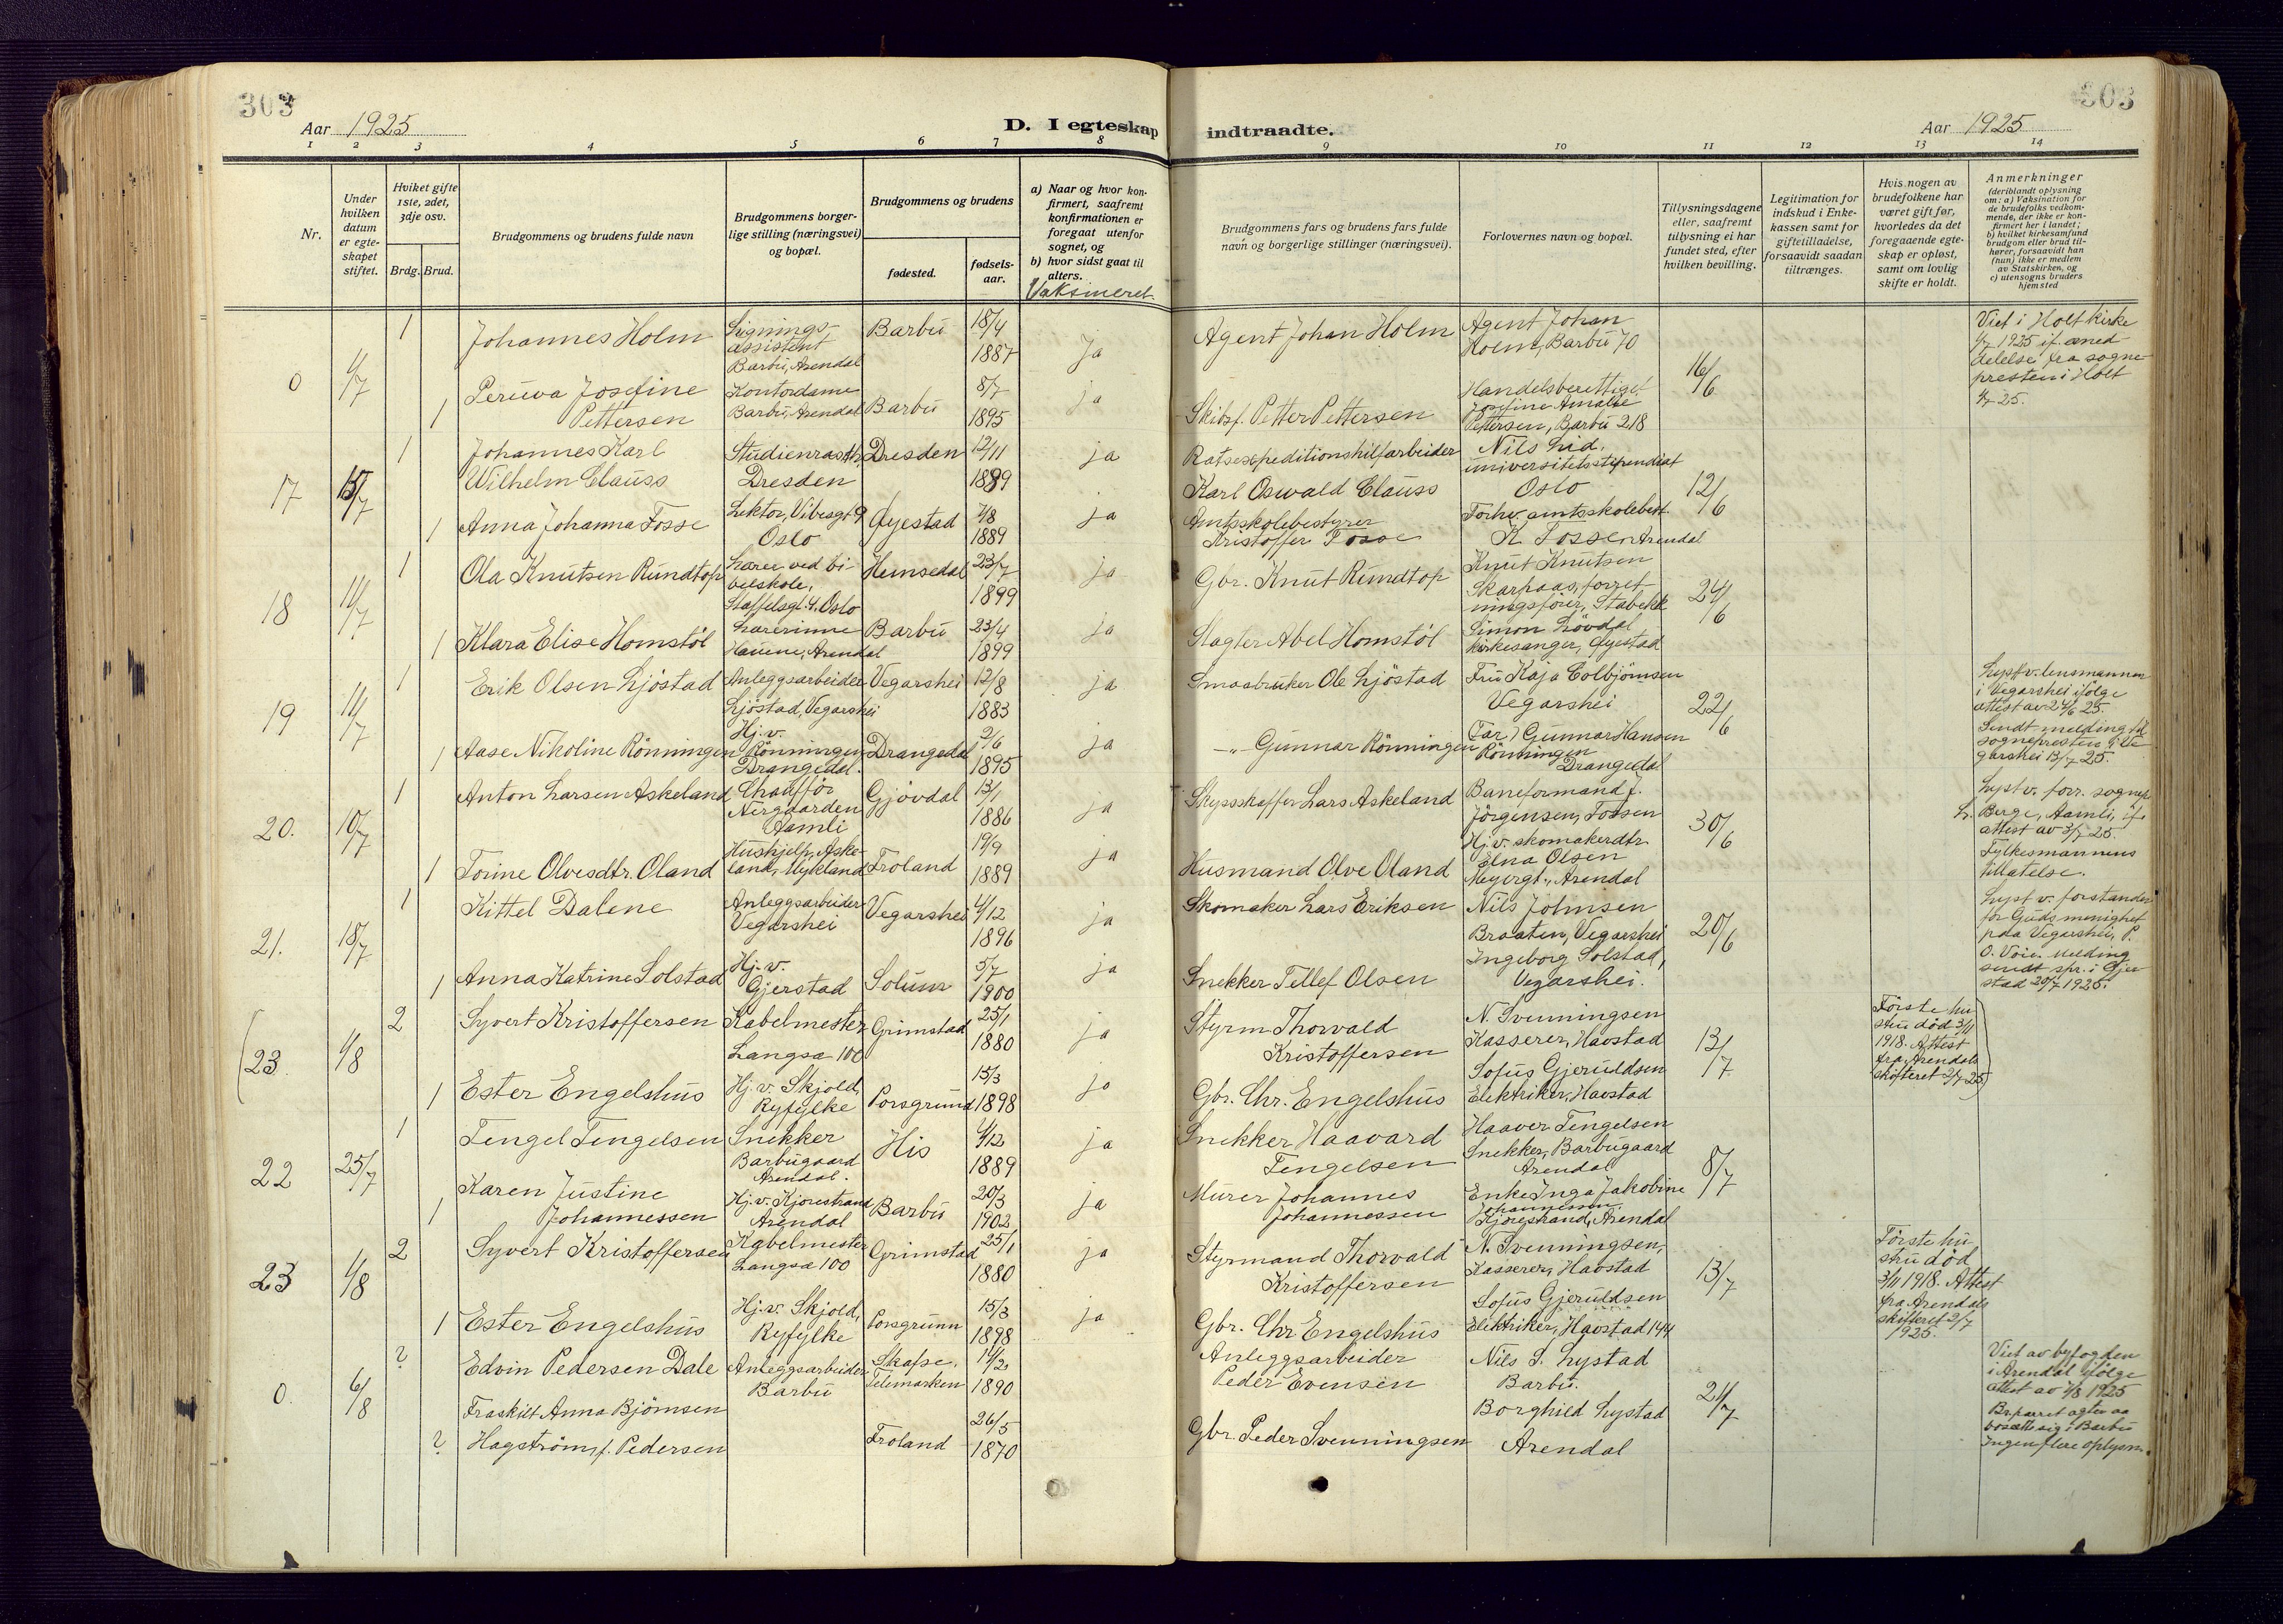 303
303
Aar 1925
D. I egteskap indtraadte.
Aar 1925
1 2 3 4 5 6 7 8 9 10 11 12 13 14
Nr.
Under hvilken datum er egteskapet stiftet.
Hviket gifte 1ste, 2det, 3dje osv.
Brdg. Brud.
Brudgommens og brudens fulde navn
Brudgommens borgerlige stilling (næringsvei) og bopæl.
Brudgommens og brudens
fødested.
fødselsaar.
a) Naar og hvor konfirmert, saafremt konfirmationen er foregaat utenfor sognet, og
b) hvor sidst gaat til alters.
Vaksineret.
Brudgommens fars og brudens fars fulde navn og borgerlige stillinger (næringsvei).
Forlovernes navn og bopæl.
Tillysningsdagene eller, saafremt tillysning ei har fundet sted, efter hvilken bevilling.
Legitimation for indskud i Enkekassen samt for giftetilladelse, forsaavidt saadan tiltrænges.
Hvis nogen av brudefolkene har været gift før, hvorledes da det foregaaende egteskap er opløst, samt om lovlig skifte er holdt.
Anmerkninger
(deriblandt oplysning om: a) Vaksination for de brudefolks vedkommende, der ikke er konfirmert her i landet;
b) hvilket kirkesamfund brudgom eller brud tilhører, forsaavidt han (hun) ikke er medlem av Statskirken, og
c) utensogns bruders hjemsted
0 4/7 1 Johannes Holm
Ligningsassistent Barbu, Arendal
Barbu 18/4 1887 ja
Agent Johan Holm
Agent Johan Holm, Barbu 70
16/6
Viet i Holt kirke 4/7 1925 if. meddelelse fra sognepresten i Holt 4/7 25.
1 Peruva Josefine Pettersen
Kontordame Barbu, Arendal
Barbu 8/7 1895 ja
Skibsf. Petter Pettersen
Handelsberettiget Josefine Amalie Pettersen, Barbu 218
17 15/7 1 Johannes Karl Wilhelm Clauss
Studienrasth, Dresden
Dresden 12/11 1889 ja
Ratsexpeditionshilfarbeider Karl Oswald Clauss
Nils Lid. universitetsstipendiat Oslo
12/6
1 Anna Johanna Fosse
Lektor, Vibesgt 9 Oslo
Øyestad 7/8 1889 ja
Amtsskolebestyrer Kristoffer Fosse
Forhv. amtsskolebest. K. Fosse Arendal
18 11/7 1 Ola Knutsen Rundtop
Lærer ved bibelskole, Staffelsgt. 4. Oslo
Hemsedal 23/7 1899 ja
Gbr. Knut Rundtop
Knut Knutsen Skarpaas, forretningsfører, Stabekk
24/6
1 Klara Elise Homstøl
Lærerinne Havene, Arendal
Barbu 23/4 1899 ja
Slagter Abel Homstøl
Simon Løvdal kirkesanger, Øyestad
19 11/7 1 Erik Olsen Ljøstad
Anleggsarbeider Ljøstad, Vegarshei
Vegarshei 12/8 1883 ja
Smaabruker Ole Ljøstad
Fru Kaja Colbjørnsen Vegarshei
22/6
Lyst v. lensmannen i Vegarshei ifølge attest av 24/6 25.
Sendt melding til sognepresten i Vegarshei 13/7 25.
1 Aase Nikoline Rønningen
Hj. v. Rønningen, Drangedal.
Drangedal 2/6 1895 ja
—"— Gunnar Rønningen
Far) Gunnar Hansen Rønningen Drangedal
20. 10/7 1 Anton Larsen Askeland
Chauffør Nergaarden Aamli
Gjøvdal 13/1 1886 ja
Skysskaffer Lars Askeland
Baneformand J. Jørgensen, Fossen
30/6
Lyst v. forr. sognep. L. Berge, Aamli, if. attest av 3/7 25.
Fylkesmannens tillatelse.
1 Torine Olvesdtr. Oland
Hushjelp, Askeland, Mykland
Froland 19/9 1889 ja
Husmand Olve Oland
Hj. v. skomakerdtr. Elna Olsen Meyergt., Arendal
21. 18/7 1 Kittel Dalene
Anleggsarbeider Vegarshei
Vegarshei 4/12 1896 ja
Skomaker Lars Eriksen
Nils Johnsen Braaten, Vegarshei
20/6
Lyst v. forstander for Guds menighet paa Vegarshei, P. O. Voie. Melding sendt spr. i Gjerstad 20/7 1925.
1 Anna Katrine Solstad
Hj. v. Gjerstad
Solum 5/7 1900 ja
Snekker Tellef Olsen
Ingeborg Solstad, Vegarshei.
(23. 1/8 2 Syvert Kristoffersen
Kabelmester Langsæ 100
Grimstad 25/1 1880 ja
Styrm Thorvald Kristoffersen
N. Svenningsen Kasserer, Havstad
13/7
Første hustru død 3/11 1918. Attest fra Arendals skifteret 2/7 25)
1 Ester Engelshus
Hj. v. Skjold, Ryfylke
Porsgrund 15/3 1898 ja
Gbr. Chr. Engelshus
Sofus Gjeruldsen Elektriker, Havstad
22 25/7 1 Tengel Tengelsen
Snekker Barbugaard Arendal.
His 4/12 1889 ja
Snekker Haavard Tengelsen
Haaver Tengelsen Snekker, Barbugaard Arendal
8/7
1 Karen Justine Johannessen
Hj. v. Kjorestrand Arendal
Barbu 20/3 1902 ja
Murer Johannes Johannessen
Enke Inga Jakobine Johannessen, Kjorestrand, Arendal
23 1/8 2 Syvert Kristoffersen
Kabelmester Langsæ 100
Grimstad 25/1 1880 ja
Styrmand Thorvald Kristoffersen
N. Svenningsen, Kasserer, Havstad
13/7
Første hustru død 3/11 1918. Attest fra Arendals skifteret 2/7 1925.
1 Ester Engelshus
Hj. v. Skjold, Ryfylke
Porsgrunn 15/3 1898 ja
Gbr. Chr Engelshus
Sofus Gjeruldsen Elektriker, Havstad 144
0. 6/8 ? Edvin Pedersen Dale
Anleggsarbeider Barbu
Skafse. Telemarken 14/2 1890
Anleggsarbeider Peder Evensen
Nils S. Lystad Barbu.
21/7
Viet av byfogden i Arendal ifølge attest av 7/8 1925
Brparret agter aa bosætte sig i Barbu Ingen flere oplysn.
? Fraskilt Anna Bjørnsen Hagstrøm, f. Pedersen
Froland 26/5 1870
Gbr. Peder Svenningsen
Borghild Lystad Arendal